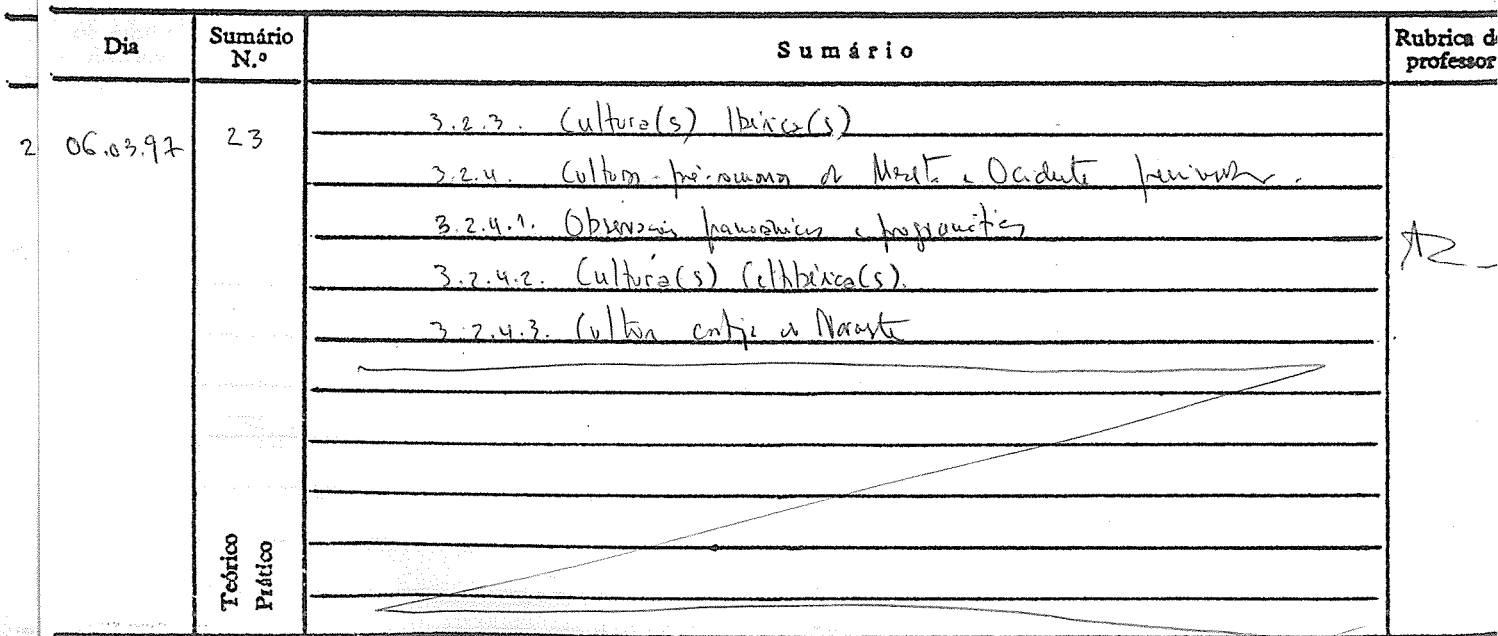 Dia
Sumário N.º
Sumário
Rubrica do professor
2
06.03.97
23
3.2.3. Cultura(s) Ibérica(s)
3.2.4. Cultura pré-romana Ocidente
3.2.4.1. panorâmicas e programáticas
3.2.4.2. Cultura(s) Celtibérica(s).
3.2.4.3. Cultura Noroeste
Teórico
Prático